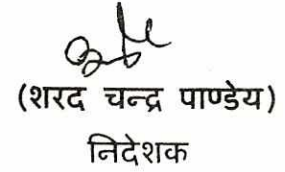 (शरद चन्द्र पाण्डेय)
निदेशक